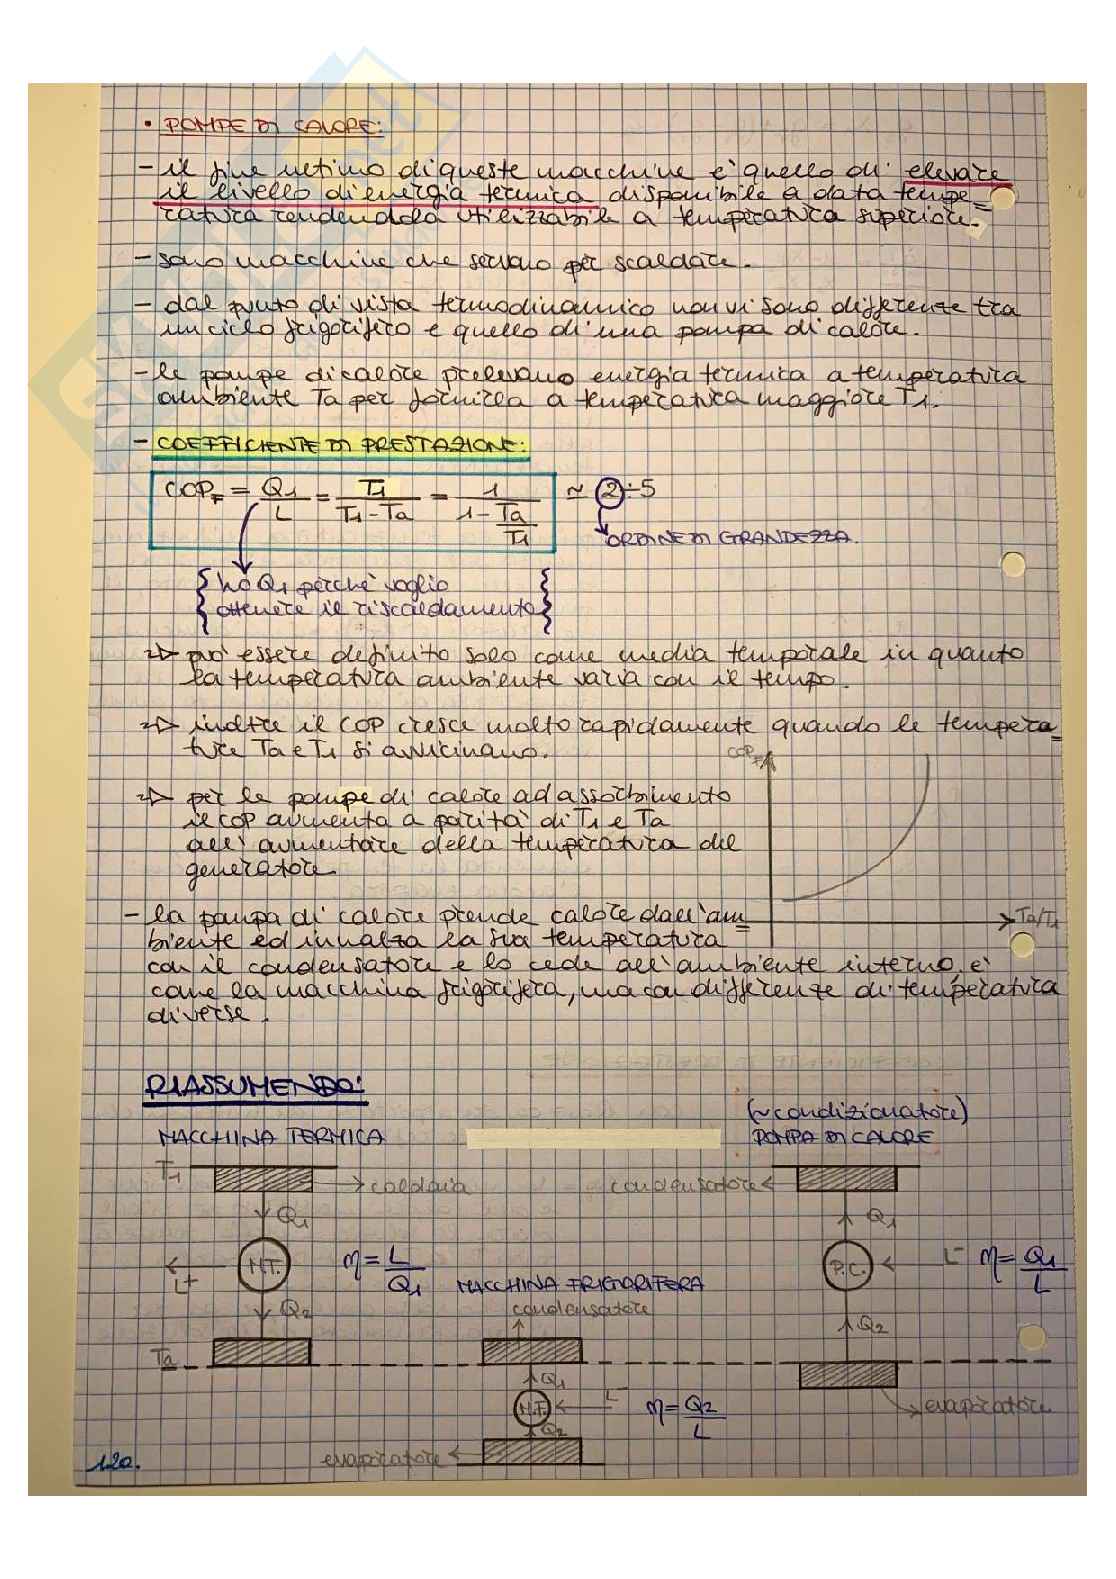 • POMPE DI CALORE:
- il fine ultimo di queste macchine e' quello di elevare
il livello di energia termica disponibile a data tempe=
ratura rendendola utilizzabile a temperatura superiore.
- sono macchine che servono per scaldare.
- dal punto di vista termodinamico non vi sono differenze tra
un ciclo frigorifero e quello di una pompa di calore.
- le pompe di calore prelevano energia termica a temperatura
ambiente Ta per fornirla a temperatura maggiore T1.
- COEFFICIENTE DI PRESTAZIONE:
COPF = Q1/L = T1/(T1-Ta) = 1/(1-Ta/T1) ≃ 2÷5
ORDINE DI GRANDEZZA.
ho Q1 perché voglio
ottenere il riscaldamento
=> puo' essere definito solo come media temporale in quanto
la temperatura ambiente varia con il tempo.
=> inoltre il COP cresce molto rapidamente quando le tempera=
ture Ta e T1 si avvicinano.
COPF
=> per le pompe di calore ad assorbimento
il COP aumenta a parita' di T1 e Ta
all'aumentare della temperatura del
generatore.
Ta/T1
- la pompa di calore prende calore dall'am=
biente ed innalza la sua temperatura
con il condensatore e lo cede all'ambiente interno, e'
come la macchina frigorifera, ma con differenze di temperatura
diverse.
RIASSUMENDO:
(~condizionatore)
MACCHINA TERMICA POMPA DI CALORE
T1 caldaia condensatore
Q1 Q1
L+ M.T. η = L/Q1 P.C. L- η = Q1/L
MACCHINA FRIGORIFERA
Q2 condensatore Q2
Ta
Q1
M.T. L- η = Q2/L evaporatore
Q2
evaporatore
120.